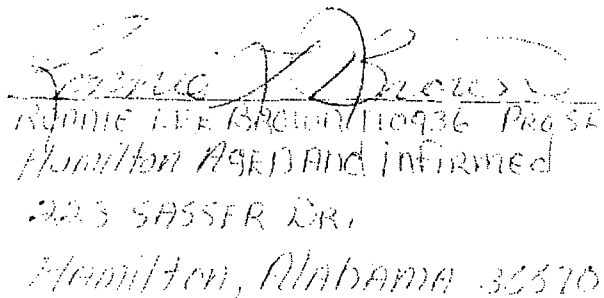 Ronnie L. Brown
RONNIE LEE BROWN 110936 PRO SE
Hamilton AGED And inFiRMed
223 SASSER DR.
Hamilton, AlABAMA 35570